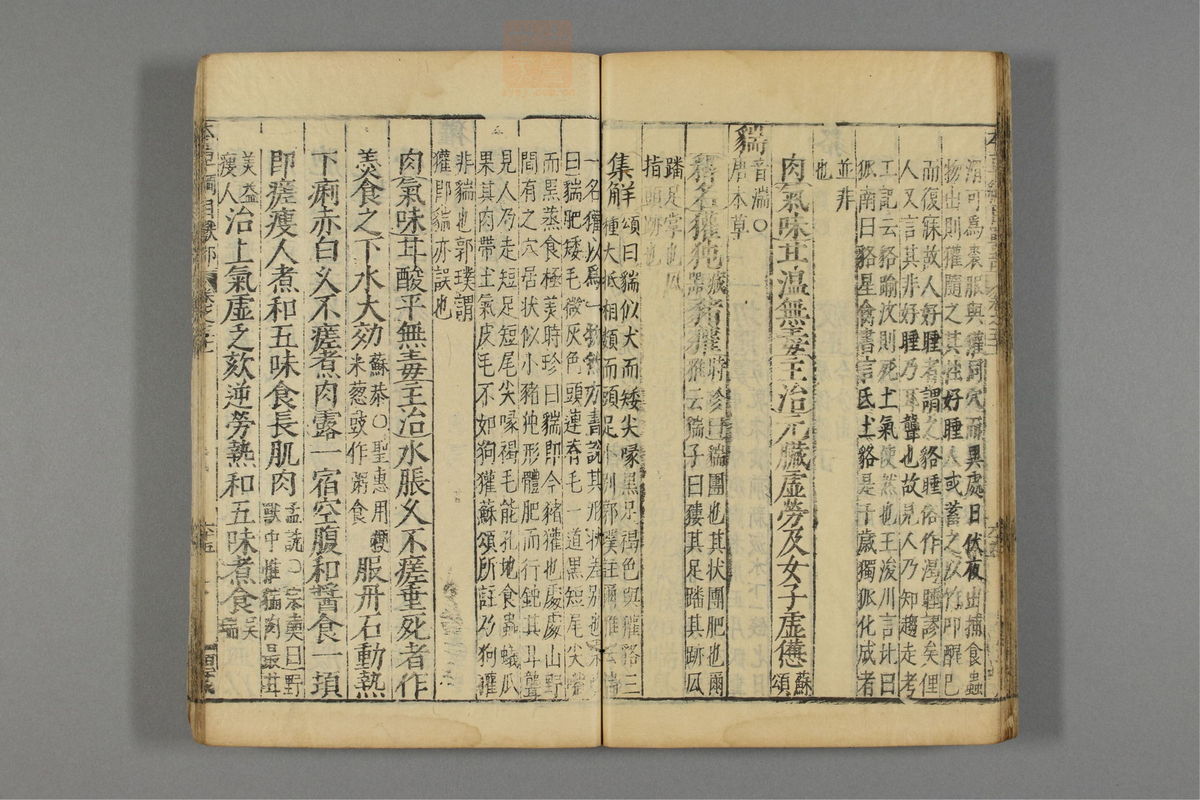 滑可為裘服與獾同穴而異處日伏夜出捕食蟲
物出則獾隨之其性好睡人或蓄之以竹叩醒已
而復寐故人好睡者謂之貉睡俗作渴睡謬矣俚
人又言其非好睡乃耳聾也故見人乃知趨走考
工記云貉踰汶則死土氣使然也王浚川言比曰
狐南曰貉星禽書言氐土貉是千歲獨狐化成者
並非
也
肉氣味甘溫無毒主治元臟虛勞及女子虛憊蘇頌
貒音湍○唐本草
釋名獾㹠豬獾時珍曰貒團也其狀團肥也爾
雅云貒子曰貗其足蹯其跡瓜
蹯足掌也瓜
指頭跡也
集解頌曰貒似犬而矮尖喙黑足褐色與獾貉三
種大抵相類而頭足小別郭璞註爾雅云貒
一名獾以為一物然方書說其形狀差別也宗奭
曰貒肥矮毛微灰色頭連脊毛一道黑短尾尖觜
而黑蒸食極美時珍曰貒即今豬獾也處處山野
間有之穴居狀似小豬㹠形體肥而行鈍其耳聾
見人乃走短足短尾尖喙褐毛能孔地食蟲蟻瓜
果其肉帶土氣皮毛不如狗獾蘇頌所註乃狗獾
非貒也郭璞謂
獾即貒亦誤也
肉氣味甘酸平無毒主治水脹久不瘥垂死者作
羹食之下水大効蘇恭○聖惠用粳米葱豉作粥食服丹石動熱
下痢赤白久不瘥煮肉露一宿空腹和醬食一頓
即瘥瘦人煮和五味食長肌肉孟詵○宗奭曰野獸中惟貒肉最甘
美益瘦人治上氣虛乏欬逆勞熱和五味煮食吳瑞
本草綱目獸部